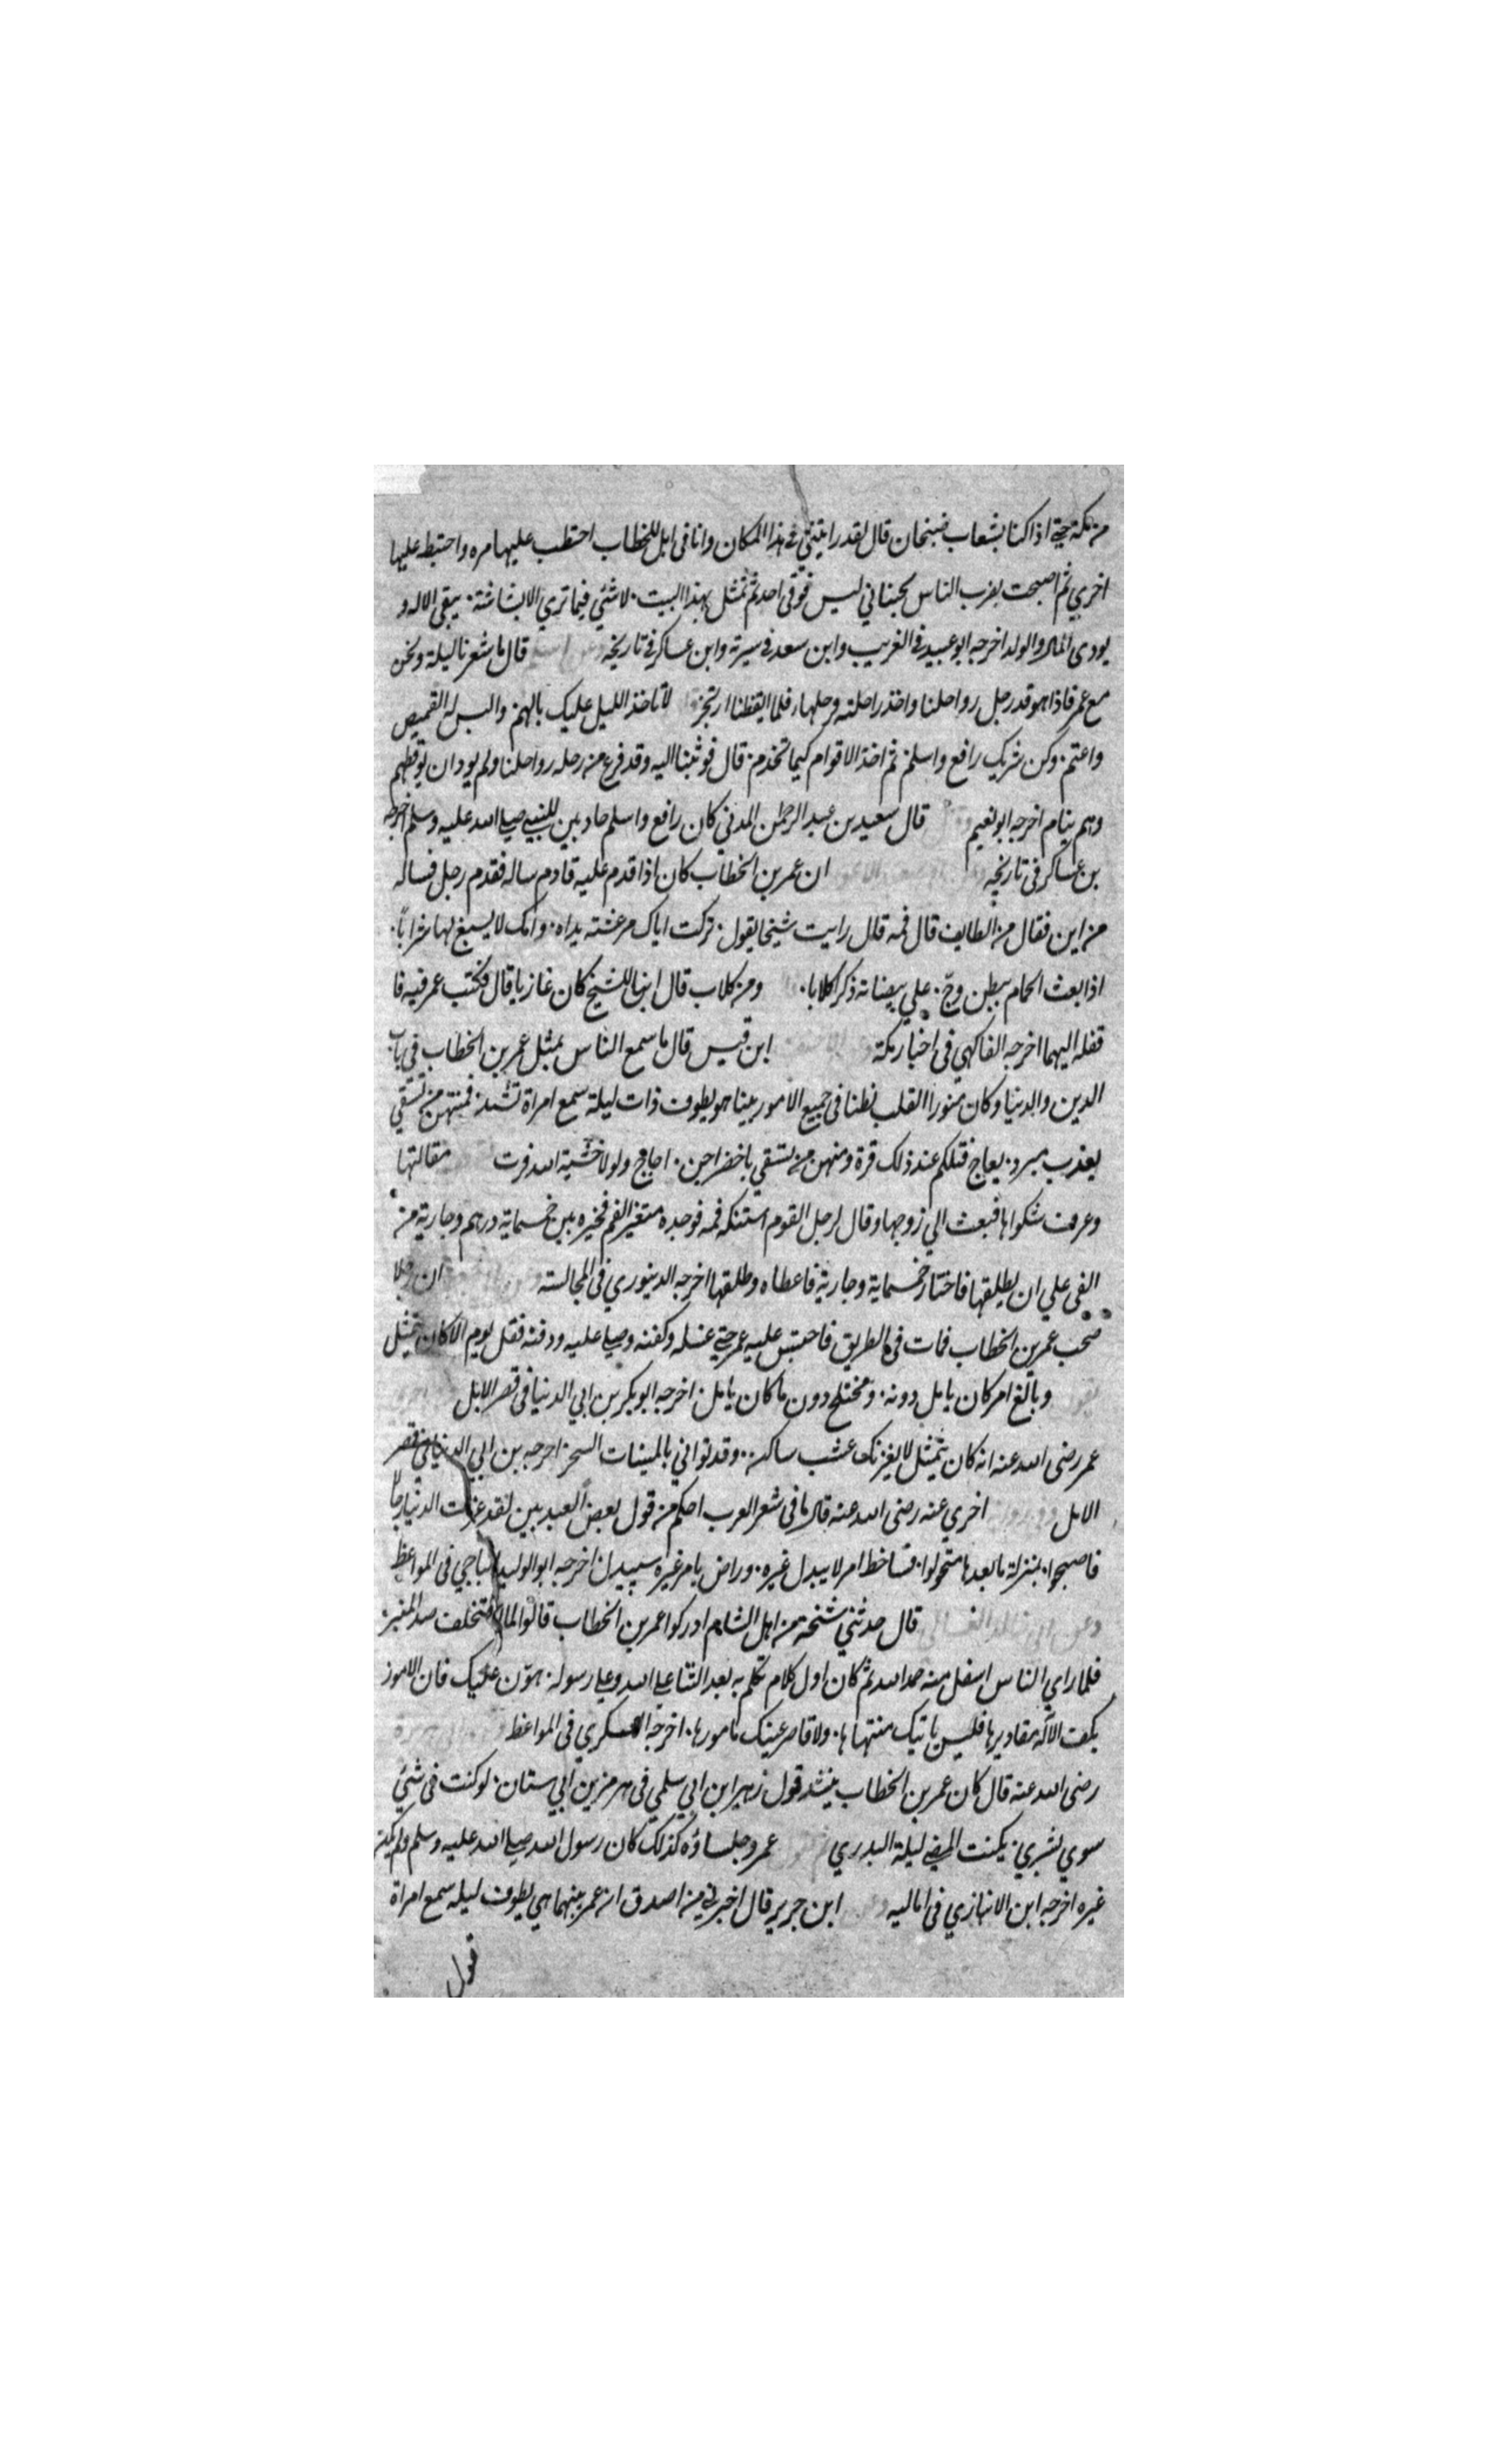 من مكة حتى اذا كنا بشعاب ضبخنان قال لقد رايتني في هذا المكان وانا في ابل للخطاب احتطب عليها مره واحتبط عليها
اخري ثم اصبحت يضرب الناس بجنباتي ليس فوقي احد ثم تمثل بهذا البيت. لا شئي فيما تري الا بشاشته. يبقي الاله و
يودي المال والولد اخرجه ابو عبيد في الغريب وابن سعد في سيرته وابن عساكر في تاريخه وعن اسلم قال ما شعرنا ليلة ونحن
مع عمر فاذا هو قد رحل رواحلنا واخذ راحلته فرحلها، فلما ايقظنا ارتجز لا تاخذ الليل عليك بالهم والبس له القميص
واعتم. وكن شريك رافع واسلم. ثم اخذ الاقوام كيما تخدم. قال فوثبنا اليه وقد فرغ من رحله رواحلنا ولم يود ان يوقظهم
وهم ينام اخرجه ابو نعيم قال سعيد بن عبد الرحمن المدني كان رافع واسلم حاديين للنبي صلى الله عليه وسلم اخرجه
بن عساكر في تاريخه ان عمر بن الخطاب كان اذا قدم عليه قادم ساله فقدم رجل فساله
من اين فقال من الطايف قال فمه قال رايت شيخا يقول. تركت اباك مرعشته يداه. وامك لا يسيغ لها شراباً.
اذا بعث الحمام ببطن وجّ. علي بيضاته ذكرا كلابا. ومن كلاب قال ابنا للشيخ كان غازيا قال فكتب عمر فيه فا
قفله اليهما اخرجه الفاكهي في اخبار مكة ابن قيس قال ما سمع الناس بمثل عمر بن الخطاب في باب
الدين والدنيا وكان منورا القلب نطنا في جميع الامور بينا هو يطوف ذات ليلة سمع امراة تنشد. فمنهن من تسقي
بعذب مبرد. يعاج فتلكم عند ذلك قرة ومنهن من تسقي باخضر اجن. اجاج ولولا خشية الله فرت مقالتها
وعرف شكواها فبعث الي زوجها وقال لرجل القوم استنكه فمه فوجده متغير الفم فخيره بين خمسماية درهم وجارية من
الفي علي ان يطلقها فاختار خمسماية وجارية فاعطاه وطلقها اخرجه الدينوري في المجالسة ان رجلا
صحب عمر بن الخطاب فمات في الطريق فاحتبس عليه عمر حتى غسله وكفنه وصلى عليه ودفنه فقل يوم الا كان تمثل
يقول وبالغ امر كان يامل دونه. ومختلج دون ما كان يامل. اخرجه ابو بكر بن ابي الدنيا في قصر الامل
عمر رضى الله عنه انه كان يتمثل لا يغرنك عشب ساكن. وقد توافي بالمينات السحر اخرجه بن ابي الدنيا في قصر
الامل وفي رواية اخري عنه رضى الله عنه قال ما في شعر العرب احكم من قول بعض العبديين لقد غرت الدنيا رجالا
فاصبحوا. بمنزلة ما بعدها متحول. فساخط امر لا يبدل غيره. وراض بامر غيره سيبدل اخرجه ابو الوليد الباجي في المواعظ
وعن ابي خالد الغساني قال حدثني مشيخة من اهل الشام ادركوا عمر بن الخطاب قالوا لما استخلف صعد المنبر
فلما راي الناس اسفل منه حمد الله ثم كان اول كلام تكلم به بعد الثنا على الله وعلى رسوله. هوّن عليك فان الامور
بكف الاله مقاديرها فليس ياتيك منتهاها. ولا قاصر عينك مامورها. اخرجه العسكري في المواعظ
رضى الله عنه قال كان عمر بن الخطاب ينشد قول زهير ابن ابي سلمي في هرمز بن ابي ستان. لو كنت في شئي
سوي بشري. يكنت المضي ليلة البدري ثم يقول عمر وجلساؤه كذلك كان رسول الله صلى الله عليه وسلم ولم يكن
غيره اخرجه ابن الانبازي في اماليه وعن ابن جرير قال اخبرني من اصدق ان عمر بينهما هي يطوف ليله سمع امراة
تقول